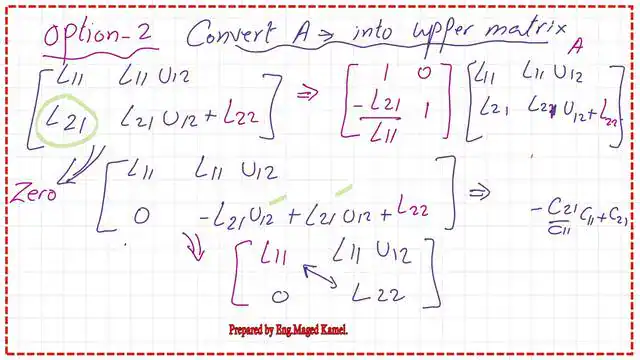 Option-2 Convert A → into upper matrix
A
[L11 L11 U12] ⇒ [1 0] [L11 L11 U12]
[L21 L21 U12 + L22] [-L21/L11 1] [L21 L21 U12 + L22]
Zero
[L11 L11 U12] ⇒
[0 -L21 U12 + L21 U12 + L22]
-C21/C11 C11 + C21
[L11 L11 U12]
[0 L22]
Prepared by Eng.Maged Kamel.